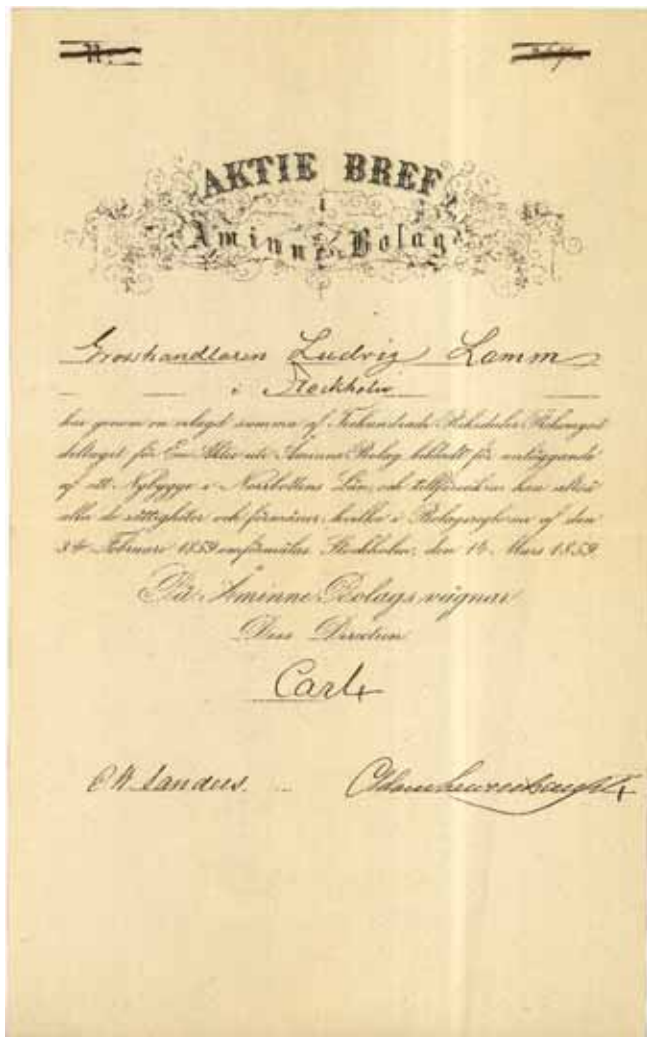 AKTIE BREF
i
Åminne Bolag
Grosshandlaren Ludvig Lamm
i Stockholm
har genom en erlagd summa af Riksdaler Riksmynt
deltaget för En Aktie uti Åminne Bolag bildadt för anläggande
af ett Nybygge i Norrbottens Län, och tillförsäkras han alltså
alla de rättigheter och förmåner, hvilka i Bolagsreglorna af den
Februari 1859 omförmälas. Stockholm, den 14 Mars 1859.
På Åminne Bolags vägnar
Dess Direction
Carl